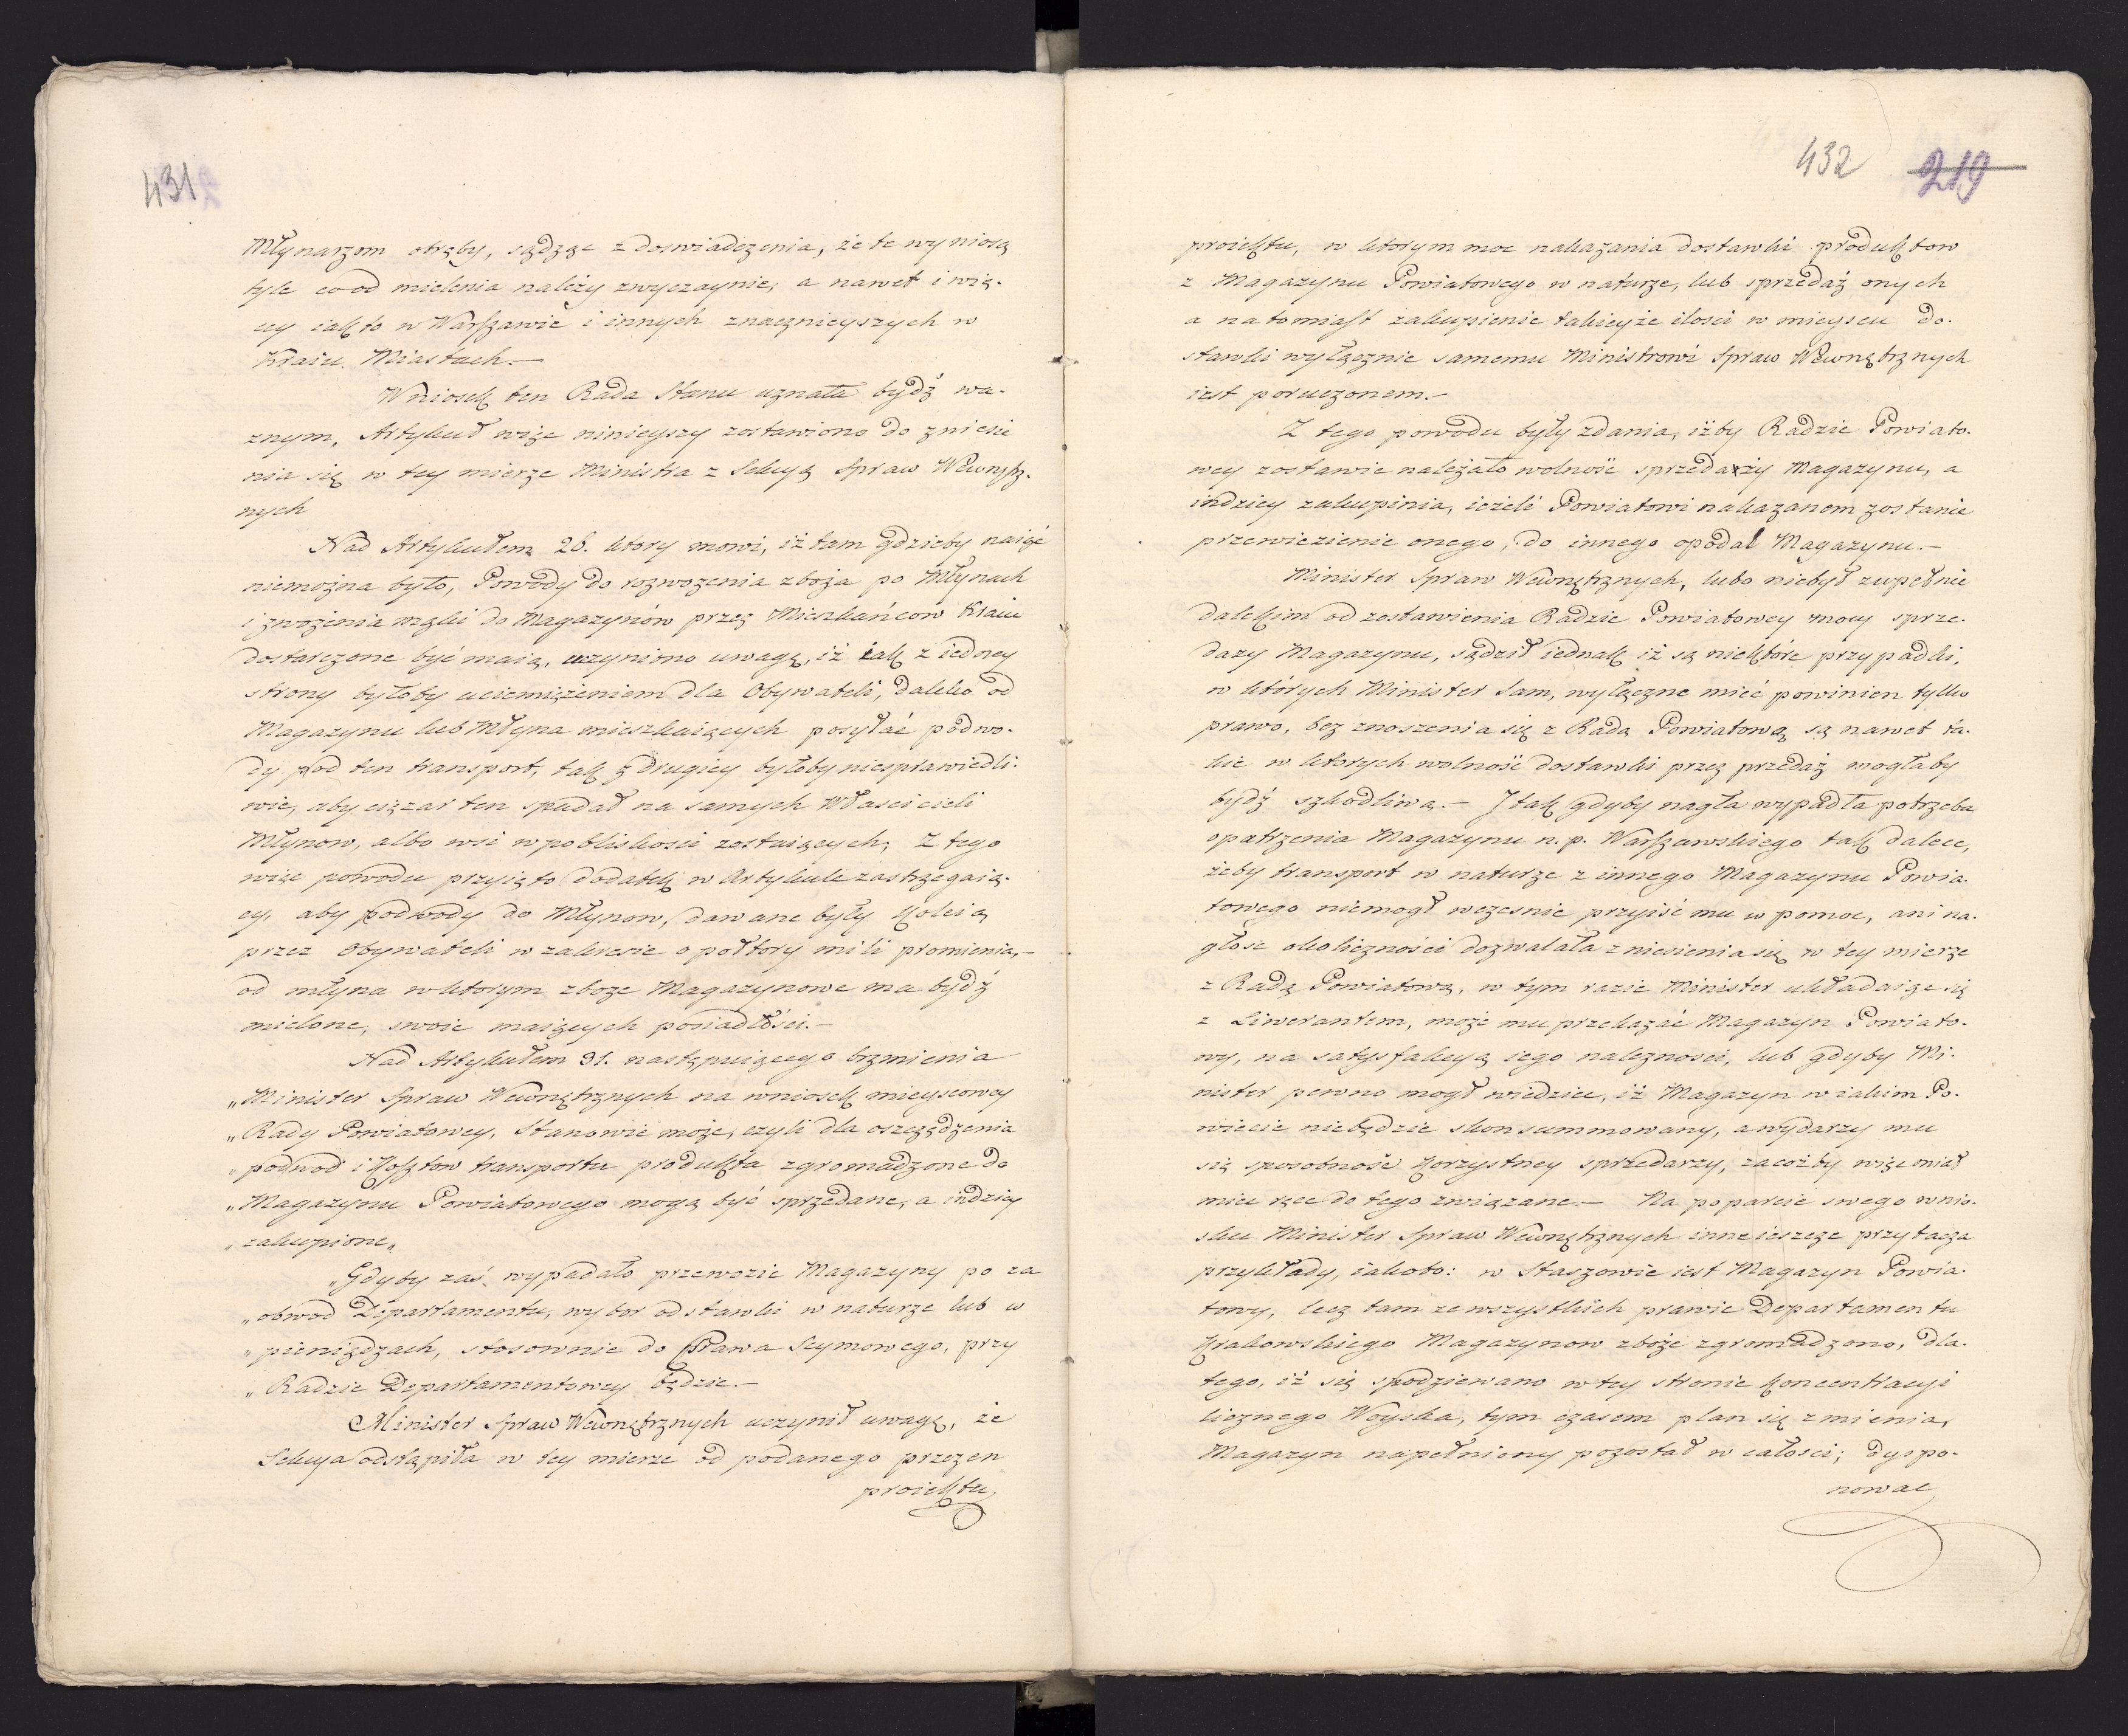 431
Młynarzom otręby, sądząc z doswiadczenia, że te wyniosą
tyle co od mielenia należy zwyczaynie, a nawet i wię-
cy iak to w Warszawie i innych znacznieyszych w
Kraiu Miastach.—
Wniosek ten Rada Stanu uznała bydź wa-
znym, Artykuł więc ninieyszy zostawiono do zniesie
nia się w tey mierze Ministra z Sekcyą Spraw Wewnętrz-
nych
Nad Artykułem 28. ktory mowi, iż tam gdzieby naiąć
niemożna było, Powody do rozwozenia zboża po Młynach
i zwożenia mąki do Magazynów przez Mieszkańcow Kraiu
dostarczone być maią, uczyniono uwagę, iż iak z iedney
strony byłoby uciemiężeniem dla Obywateli, daleko od
Magazynu lub Młyna mieszkaiących posyłać podwo-
dy pod ten transport, tak z drugiey byłoby niesprawiedli-
wie, aby ciężar ten spadał na samych Właścicieli
Młynow, albo wsi w pobliskosci zostaiących; Z tego
więc powodu przyięto dodatek w Artykule zastrzegaią-
cy, aby podwody do Młynow, dawane były koleią
przez Obywateli w zakresie o połtory mili promienia,—
od młyna w ktorym zboze Magazynowe ma bydź
mielone, swoie maiących posiadłości.—
Nad Artykułem 31. następuiącego brzmienia
„Minister Spraw Wewnętrznych na wniosek mieyscowey
„Rady Powiatowey, Stanowic może, czyli dla oszczędzenia
„podwod i kosztow transportu produkta zgromadzone do
„Magazynu Powiatowego mogą być sprzedane, a indziey
„zakupione„
„Gdyby zaś wypadało przewozic Magazyny po za
„obwod Departamentu, wybor odstawki w naturze lub w
„pieniądzach, stosownie do Prawa Seymowego, przy
„Radzie Departamentowey będzie.—
Minister Spraw Wewnętrznych uczynił uwagę, że
Sekcya odstąpiła w tey mierze od podanego przezen
proiektu,
432 219
proiektu, w ktorym moc nakazania dostawki produktow
z Magazynu Powiatowego w naturze, lub sprzedaż onych
a natomiast zakupienie takieyże ilosci w mieyscu do-
stawki wyłącznie samemu Ministrowi Spraw Wewnętrznych
iest poruczonem.—
Z tego powodu były zdania, iżby Radzie Powiato-
wey zostawić należało wolność sprzedaży Magazynu, a
indziey zakupinia, ieżeli Powiatowi nakazanem zostanie
przewiezienie onego, do innego opodal Magazynu.—
Minister Spraw Wewnętrznych, lubo niebył zupełnie
dalekim od zostawienia Radzie Powiatowey mocy sprze-
dazy Magazynu, sądził iednak iż są niektóre przypadki,
w których Minister sam, wyłączne mieć powinien tylko
prawo, bez znoszenia się z Radą Powiatową są nawet ta-
kie w ktorych wolność dostawki przez przedaż mogłaby
bydź szkodliwą.— J tak gdyby nagła wypadła potrzeba
opatrzenia Magazynu n. p. Warszawskiego tak dalece,
żeby transport w naturze z innego Magazynu Powia-
towego niemogł wczesnie przyiść mu w pomoc, ani na-
głosc okoliczności dozwalała zniesienia się w tey mierze
z Radą Powiatową, w tym razie Minister układaiąc się
z Liwerantem, może mu przekazać Magazyn Powiato-
wy, na satysfakcyą iego naleznosci, lub gdyby Mi-
nister pewno mogł wiedziec, iż Magazyn w iakim Po-
wiecie niebędzie skonsummowany, a wydarzy mu
się sposobność korzystney sprzedarzy, zacożby więc miał
miec ręce do tego związane.— Na poparcie swego wnio-
sku Minister Spraw Wewnętrznych inne ieszcze przytacza
przykłady, iakoto: w Staszowie iest Magazyn Powia-
towy, lecz tam ze wszystkich prawie Departamentu
Krakowskiego Magazynow zboże zgromadzono, dla-
tego, iż się spodziewano w tey stronie koncentracyi
licznego Woyska, tym czasem plan się zmienia,
Magazyn napełniony pozostał w całosci; dyspo-
nowac